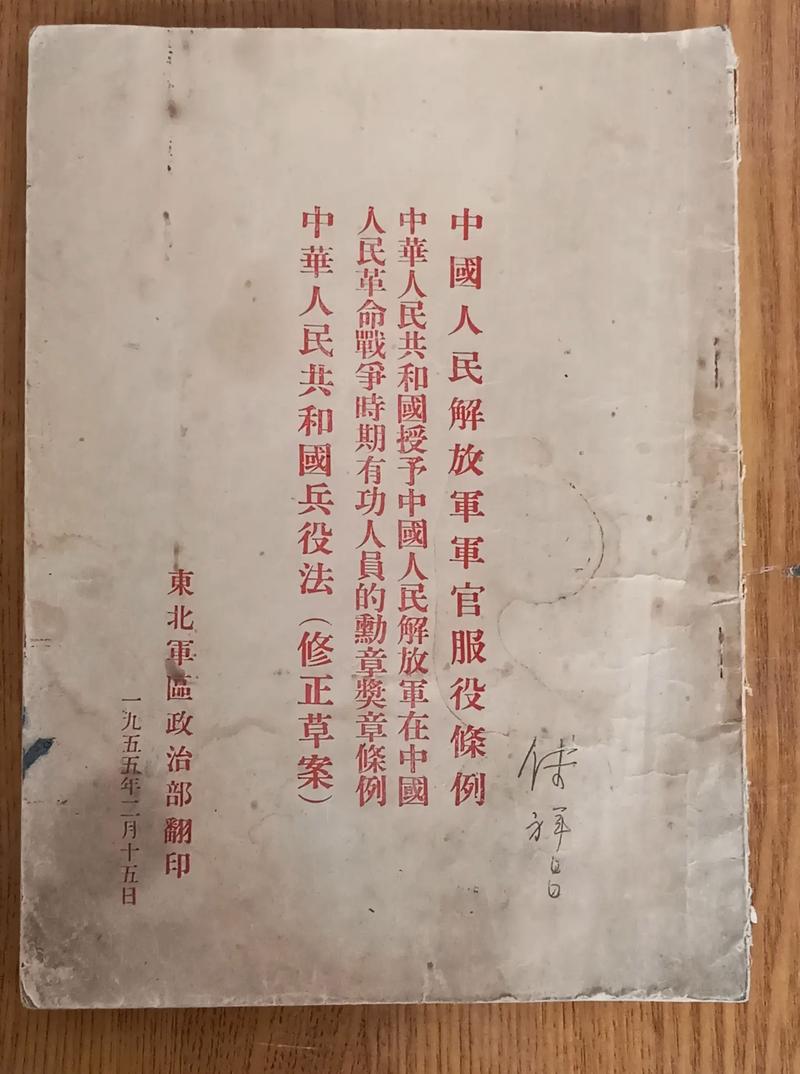 中國人民解放軍軍官服役條例
中華人民共和國授予中國人民解放軍在中國
人民革命戰爭時期有功人員的勳章獎章條例
中華人民共和國兵役法（修正草案）
東北軍區政治部翻印
一九五五年二月十五日
祥昌